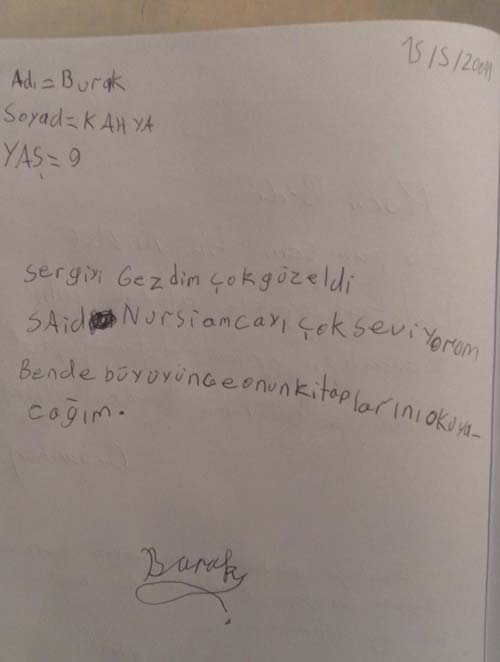 15/5/2011
Adı=Burak
Soyad=KAHYA
YAŞ=9
sergiyi Gezdim çokgüzeldi
SAid Nursiamcayı çokseviyorom
Bende büyüyünceonunkitaplarınıokuya-
cağım.
Burak